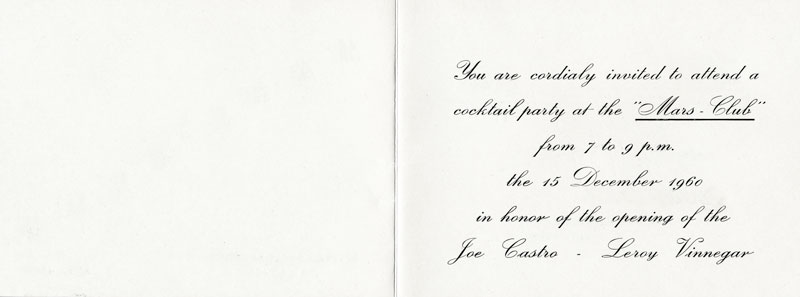 You are cordialy invited to attend a
cocktail party at the "Mars - Club"
from 7 to 9 p.m.
the 15 December 1960
in honor of the opening of the
Joe Castro - Leroy Vinnegar